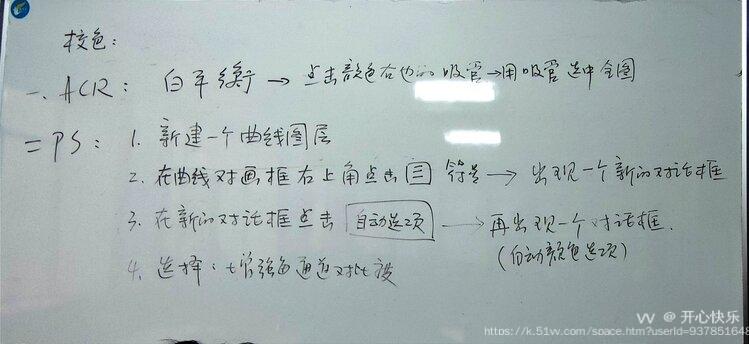 校色：
一、ACR： 白平衡 → 点击颜色右边的吸管→用吸管选中全图
二 PS： 1. 新建一个曲线图层
2. 在曲线对画框右上角点击 三 符号 → 出现一个新的对话框
3. 在新的对话框点击 自动选项 → 再出现一个对话框.
(自动颜色选项)
4. 选择：增强每通道对比度
vv @ 开心快乐
https://k.51vv.com/space.htm?userId=937851648